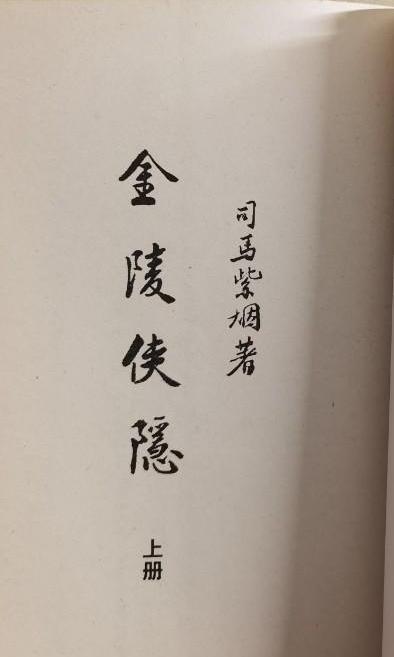 司馬紫烟著
金陵侠隱
上册